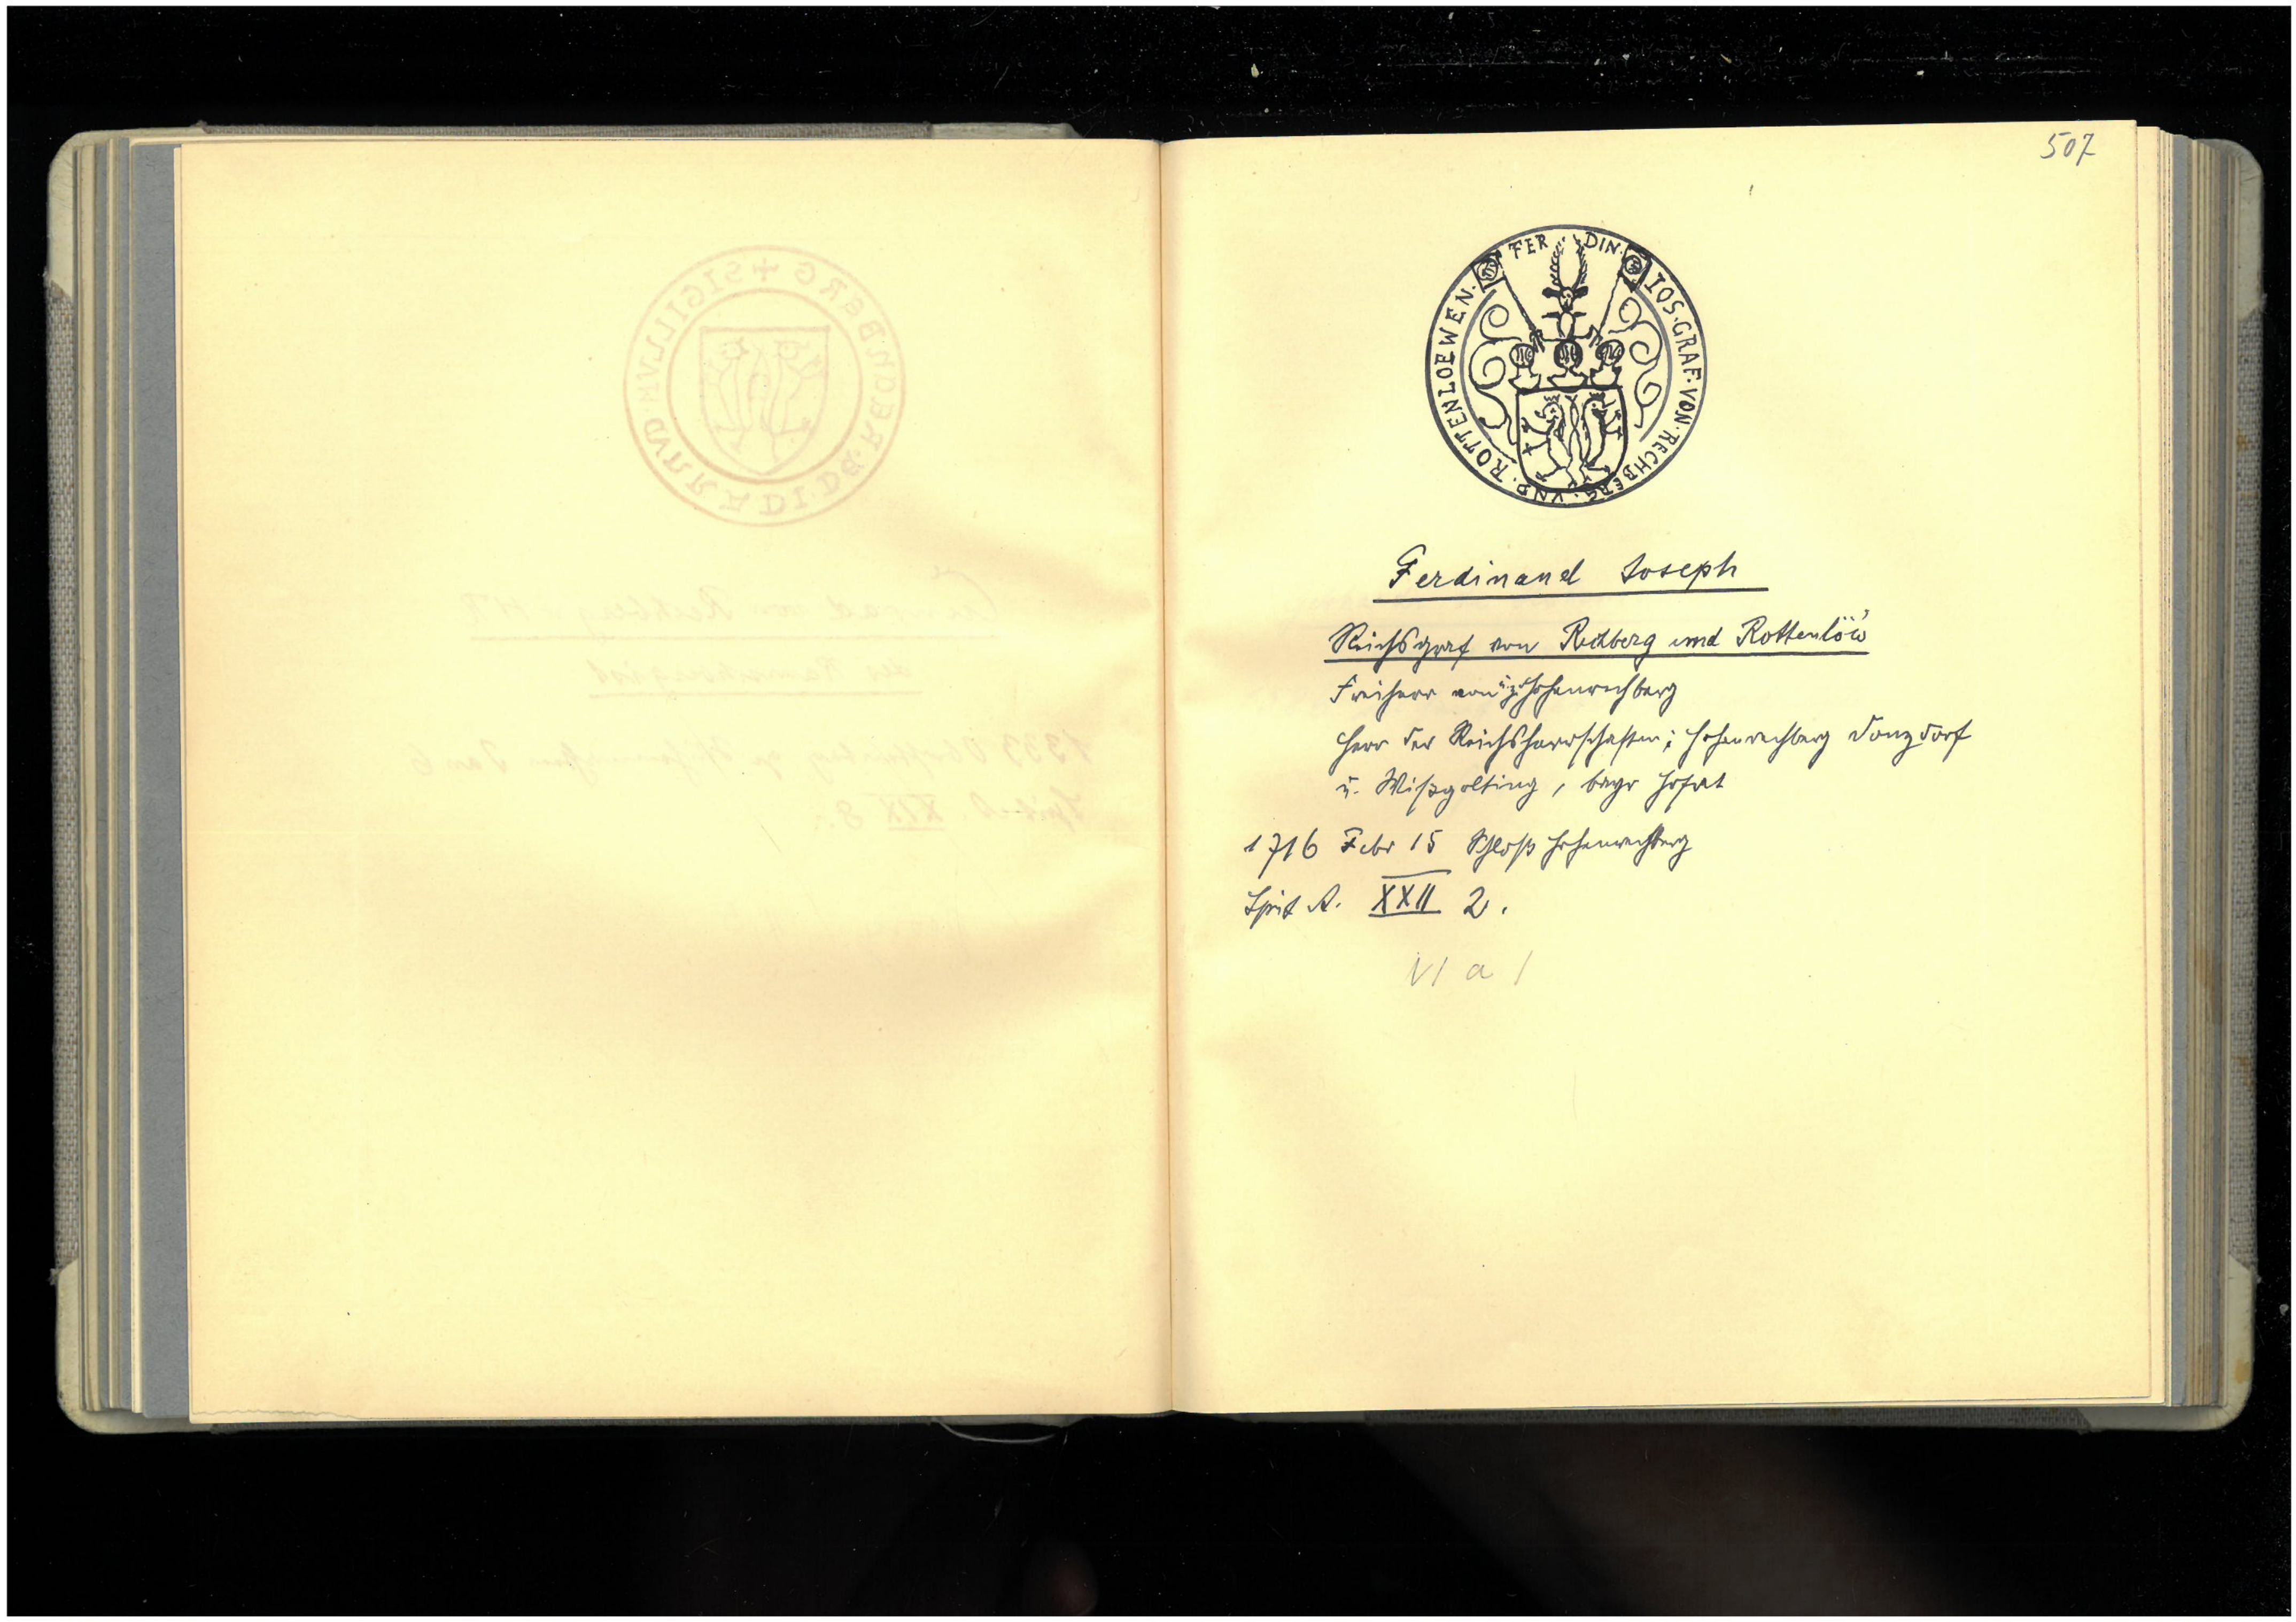 507
FER DIN. IOS. GRAF. VON. RECHBERG. VND. ROTTENLOEWEN.
Ferdinand Joseph
Reichsgraf von Rechberg und Rottenlöw
Freiherr von u. z. Hohenrechberg
Herr der Reichsherrschaften; Hohenrechberg Donzdorf
u. Wißgolting, bayr Hofrat
1716 Febr 15 Schloß Hohenrechberg
Spit A. XXII 2.
VI a 1